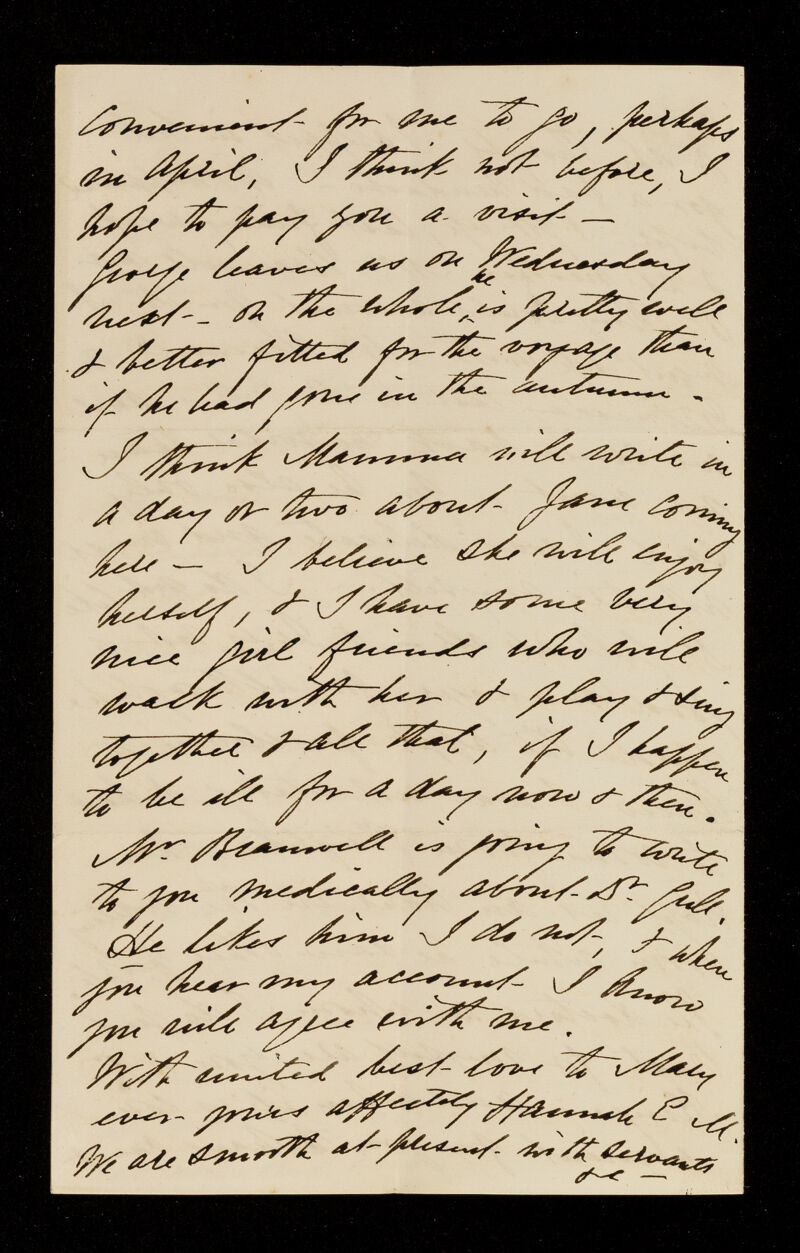 convenient for me to go, perhaps
in April, I think not before, I
hope to pay you a visit —
George leaves us on Wednesday
next – on the whole, he is pretty well
& better fitted for the voyage than
if he had gone in the autumn –
I think Mamma will write in
a day or two about Jane coming
here — I believe she will enjoy
herself, & I have some very
nice girl friends who will
walk with her & play & sing
together & all that, if I happen
to be ill for a day now & then.
Mr. Bramwell is going to write
to you medically about Dr. Gull.
He likes him I do not, & when
you hear my account I know
you will agree with me.
With united best love to Mary
ever yours affectely Hannah E M.
We are smooth at present with servants
&c —